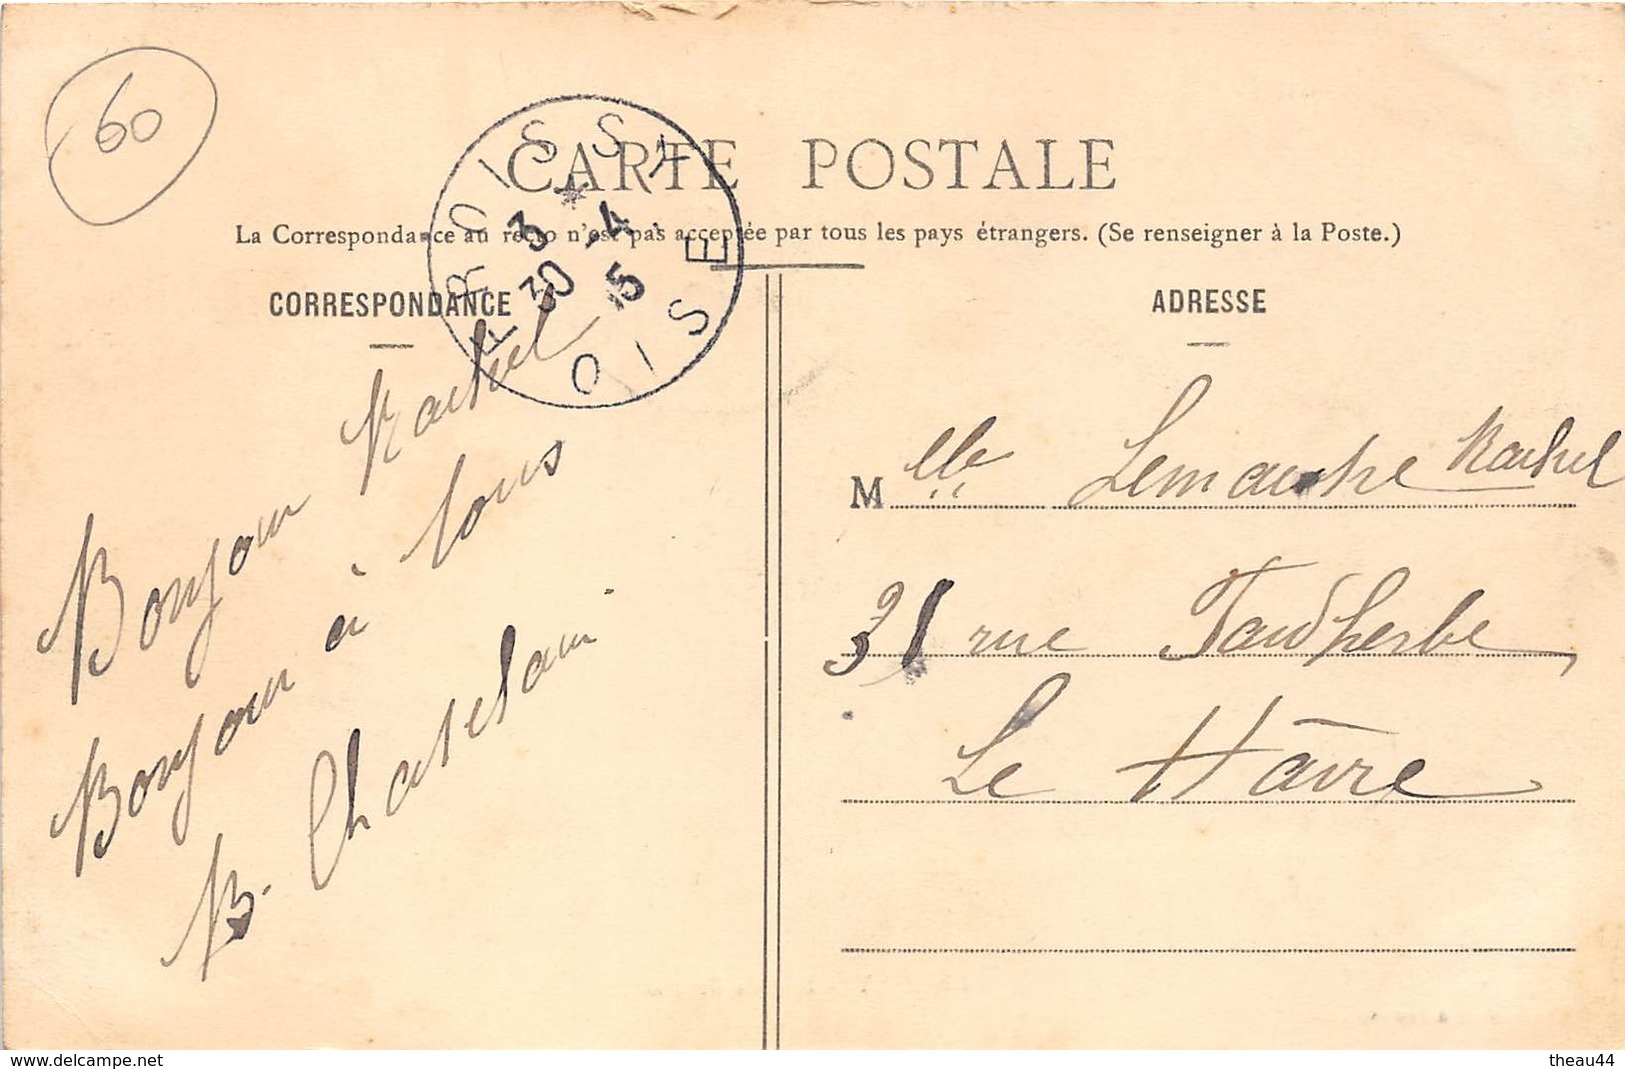 60
CARTE POSTALE
La Correspondance au recto n'est pas acceptée par tous les pays étrangers. (Se renseigner à la Poste.)
FROISSY
3 * 30 -4 15
OISE
CORRESPONDANCE
Bonjour Rachel
Bonjour à tous
B. Chatelain
ADRESSE
Mlle Lemaistre Rachel
31 rue Faidherbe
Le Hâvre
www.delcampe.net
theau44